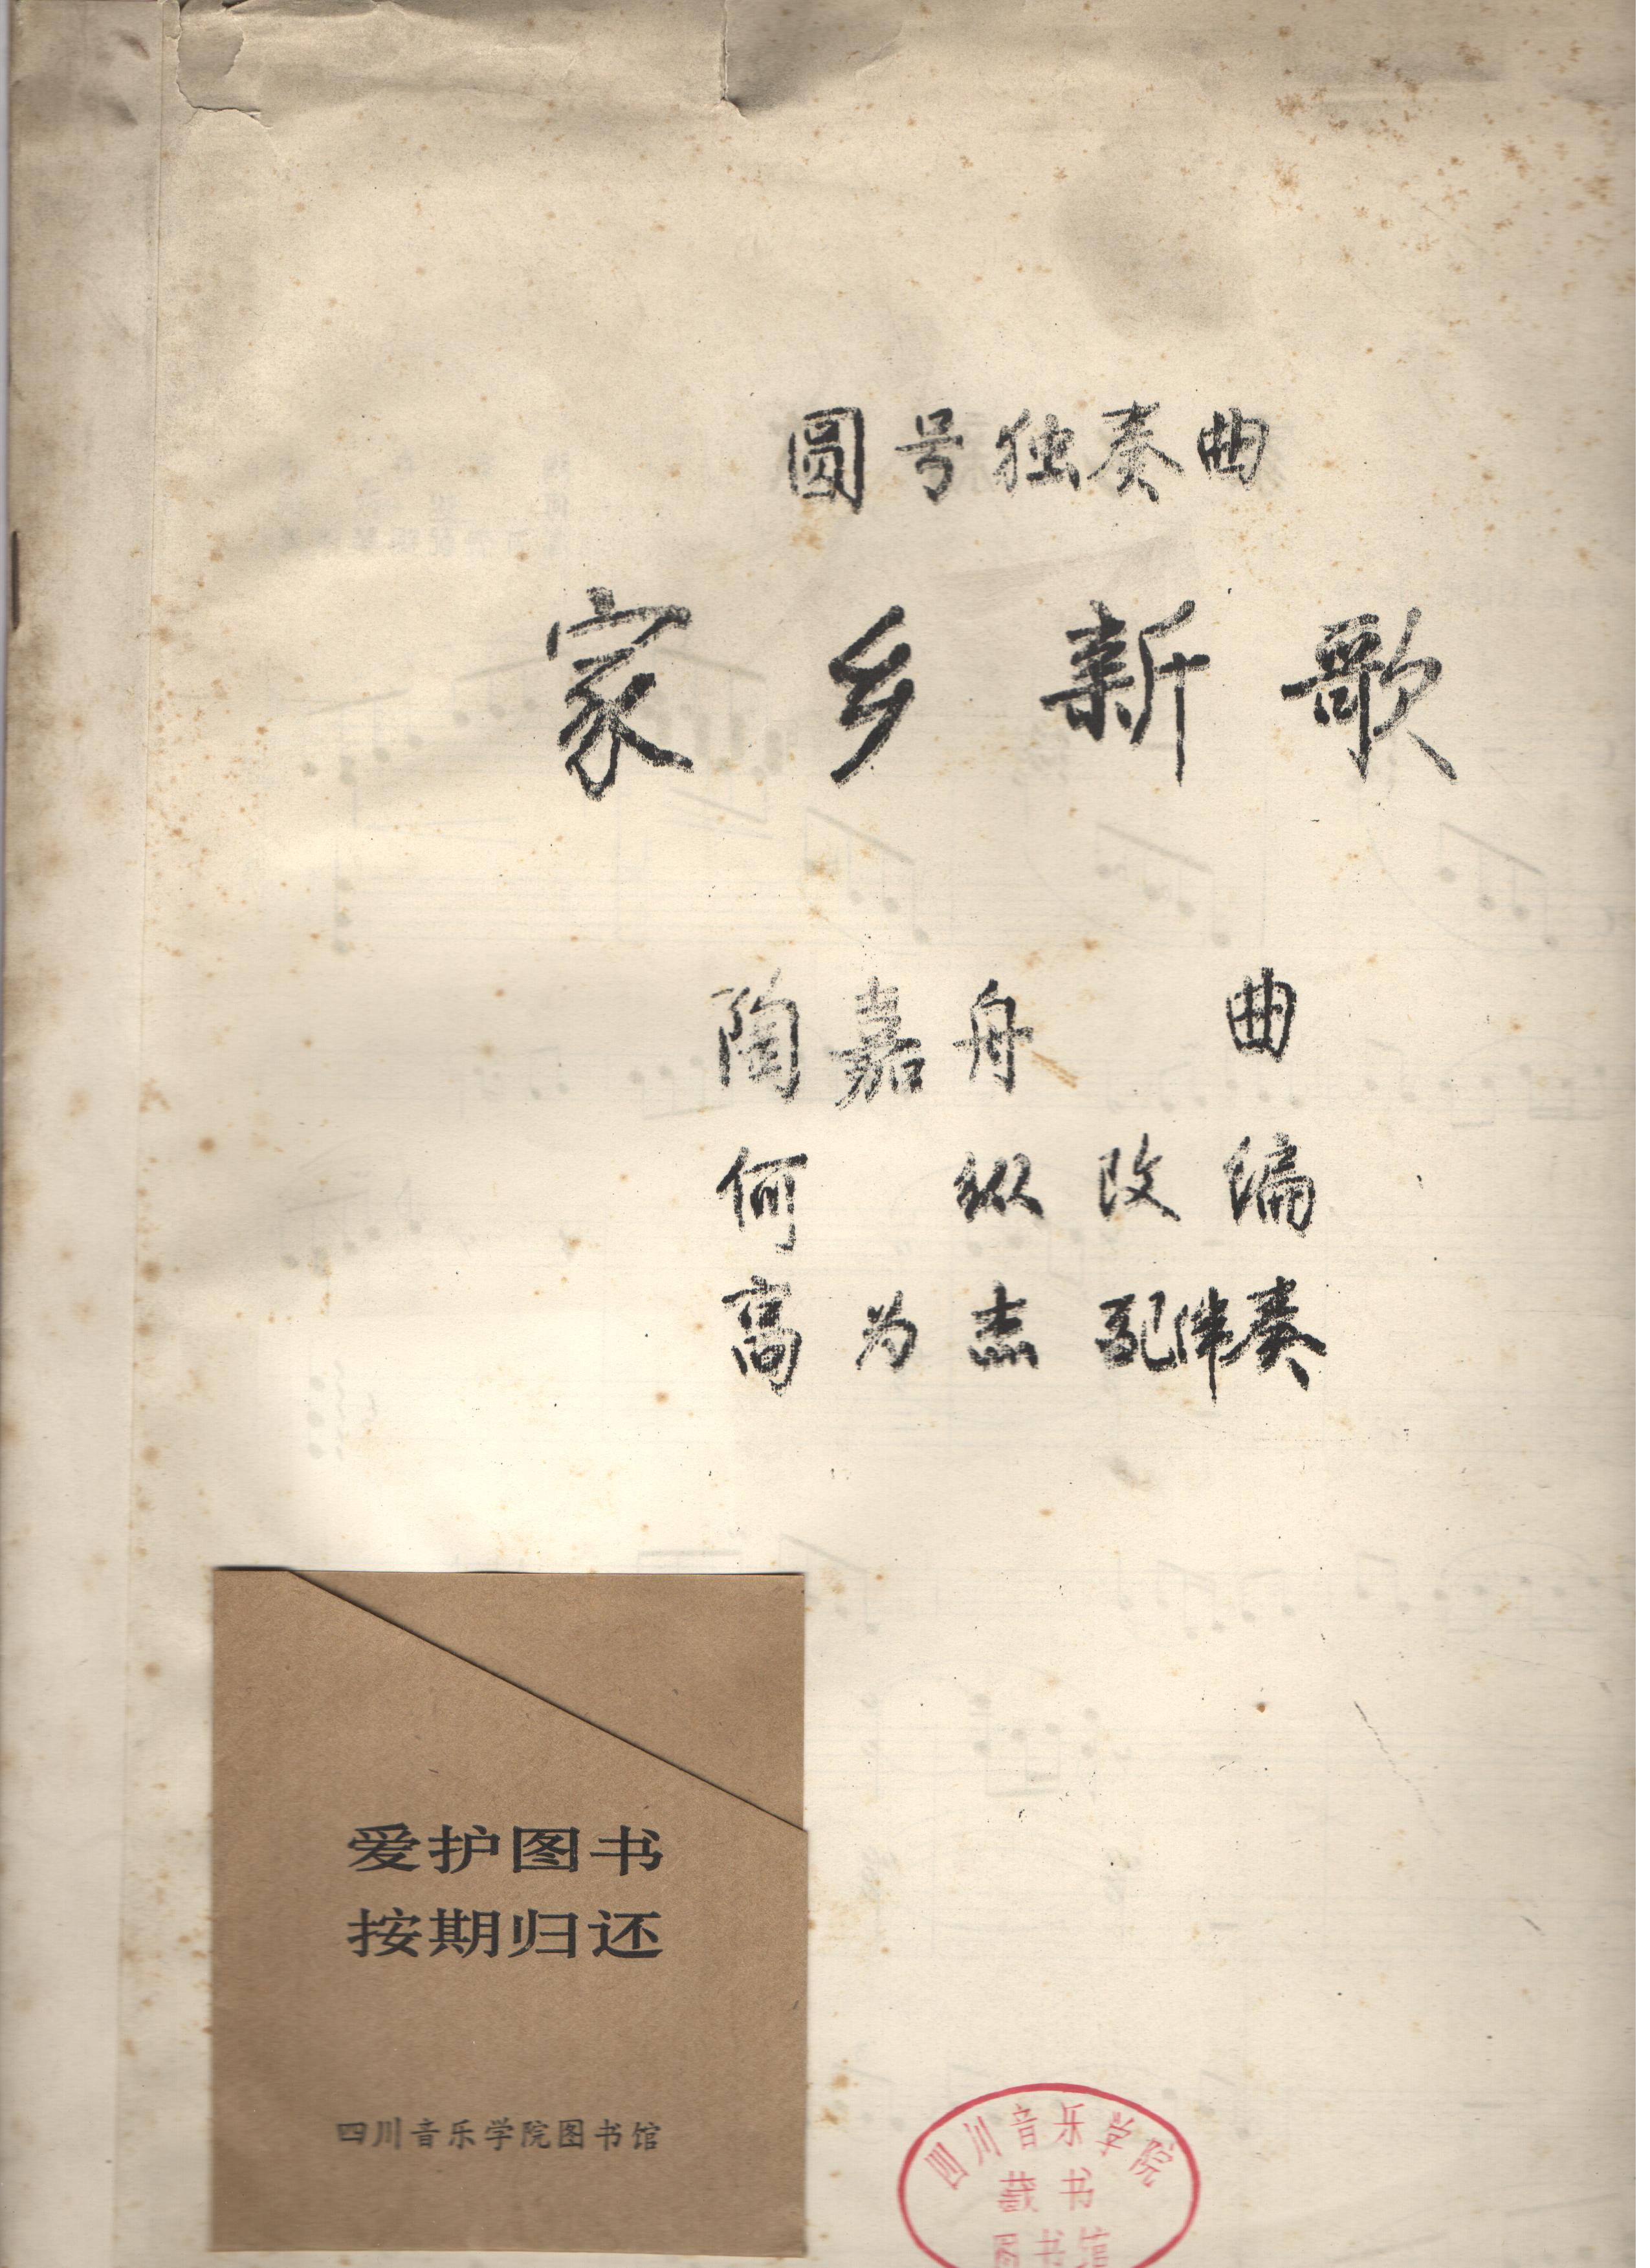 圆号独奏曲
家乡新歌
陶嘉舟 曲
何纵改编
高为杰配伴奏
爱护图书
按期归还
四川音乐学院图书馆
四川音乐学院
藏书
图书馆